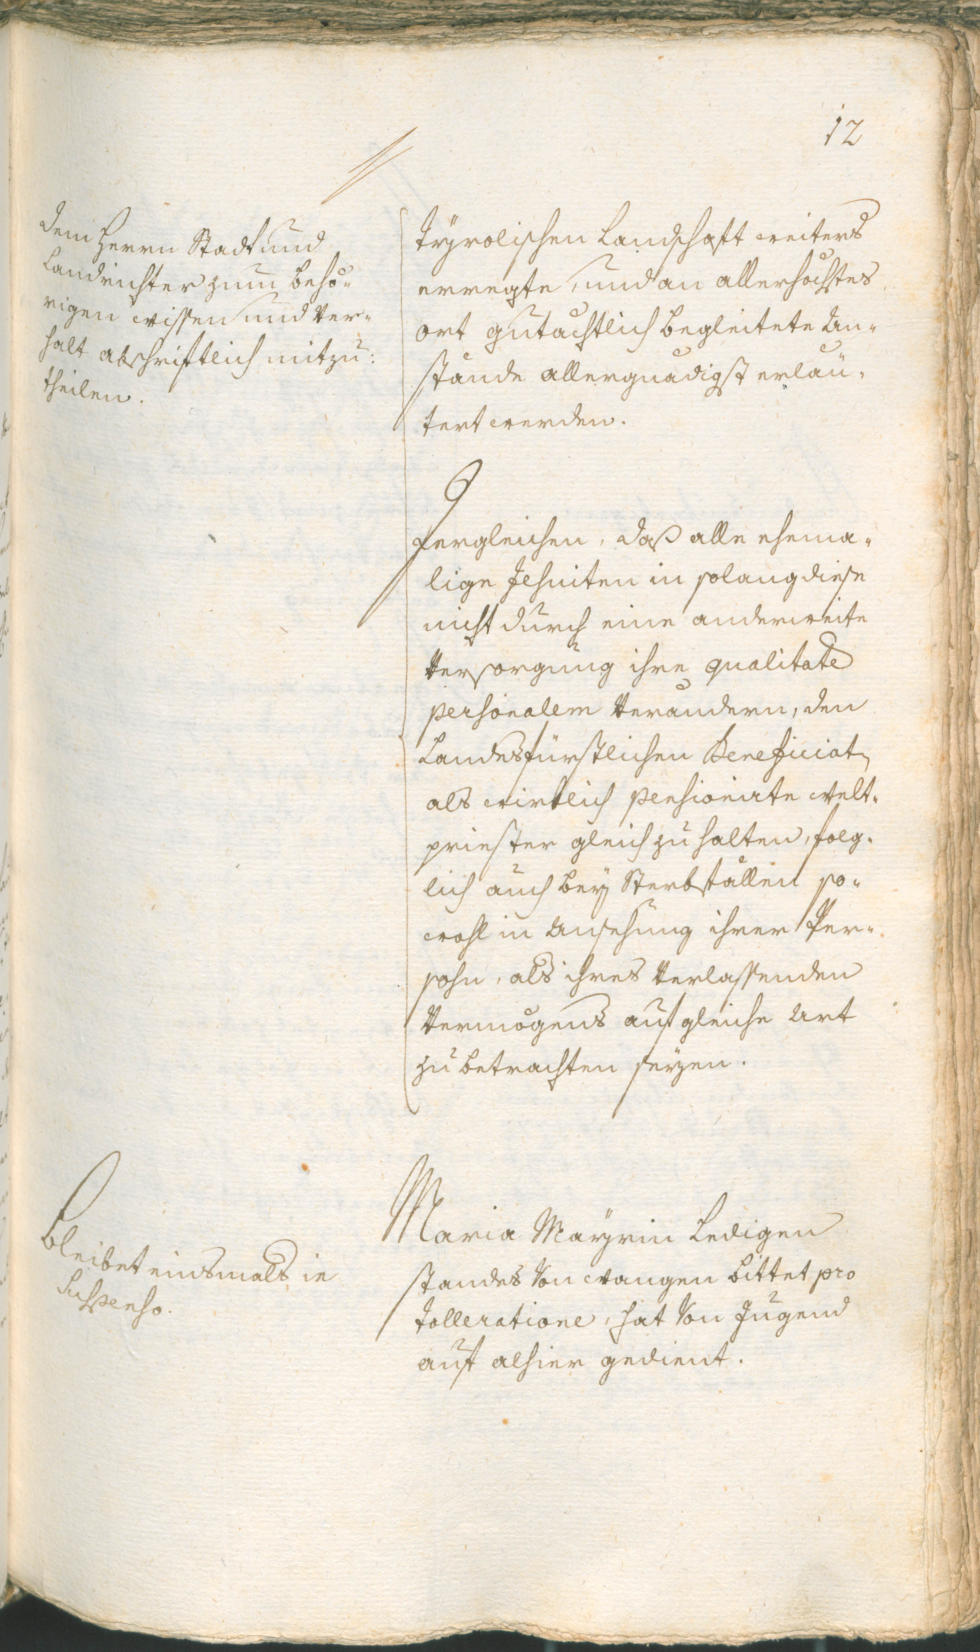 12
dem Herrn Stadt und
Landrichter zum behö-
rigen wissen und Ver-
halt abschriftlich mitzu-
theilen.
Tÿrolischen Landschaft weiters
erregte, und an allerhöchstes
ort gutächtlich begleitete An-
stände allergnädigst erläu-
tert werden.
Jergleichen, daß alle ehema-
lige Jesuiten in solang diese
nicht durch eine anderweite
Versorgung ihre qualitate
personalem Verändern, den
Landesfürstlichen Beneficiat
als wirklich pensionirte welt-
priester gleich zu halten, folg-
lich auch beÿ Sterbfällen so-
wohl in Ansehung ihrer Per-
sohn, als ihres Verlassenden
Vermögens auf gleiche Art
zu betrachten seÿen.
Bleibet einsmals in
Suspenso.
Maria Maÿrin Ledigen
standes Von wangen bittet pro
Tolleratione, hat Von Jugend
auf alhier gedient.